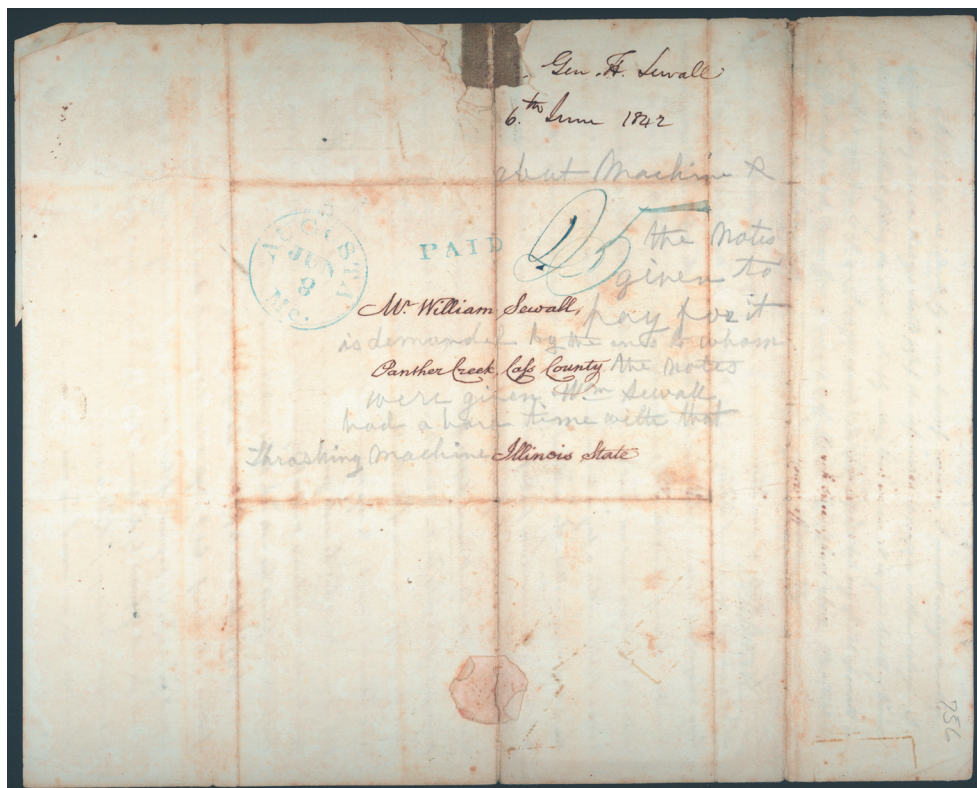 Gen. H. Sewall
6.th June 1842
about Machine &
the Notes
given to
pay for it
is demanded by the ones to whom
the Notes
were given Wm Sewall
had a hard time with that
Thrashing Machine
AUGUSTA
JUN
8
Me.
PAID
25
Mr. William Sewall,
Panther Creek, Cass County
Illinois State
756